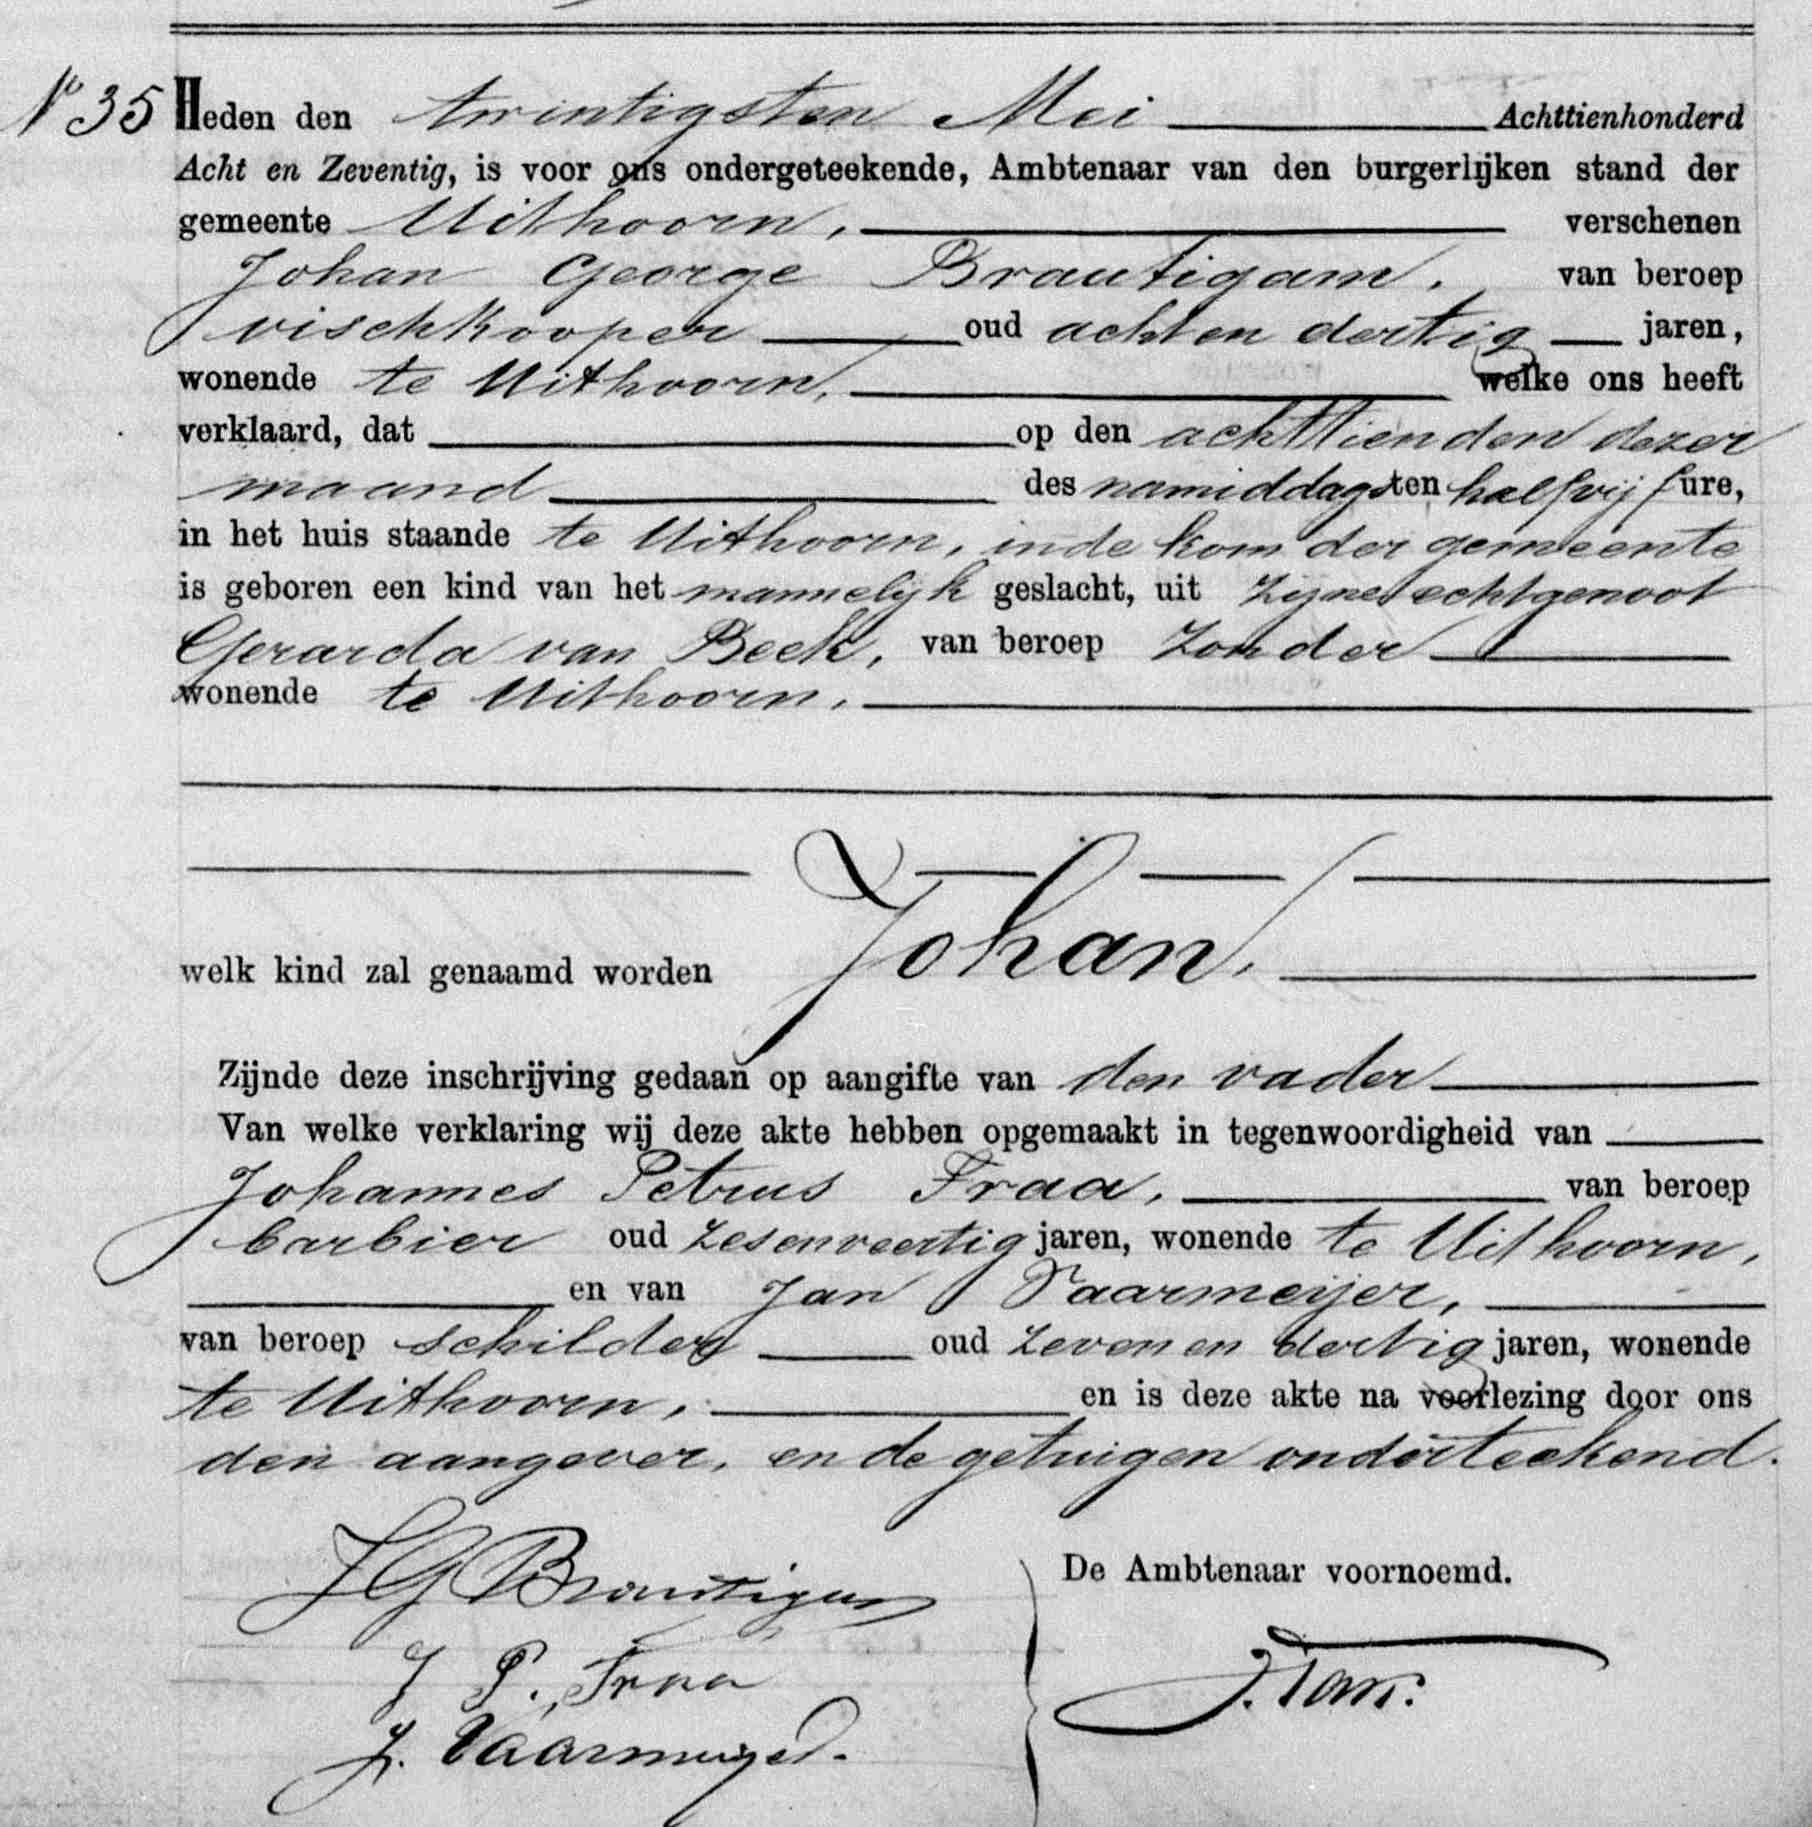 No 35 Heden den twintigsten Mei Achttienhonderd
Acht en Zeventig, is voor ons ondergeteekende, Ambtenaar van den burgerlijken stand der
gemeente Uithoorn, verschenen
Johan George Brautigam, van beroep
vischkooper oud acht en dertig jaren,
wonende te Uithoorn, welke ons heeft
verklaard, dat op den achttienden dezer
maand des namiddags ten half vijf ure,
in het huis staande te Uithoorn, in de kom der gemeente
is geboren een kind van het mannelijk geslacht, uit zijne echtgenoot
Gerarda van Beek, van beroep zonder
wonende te Uithoorn.
Johan,
welk kind zal genaamd worden
Zijnde deze inschrijving gedaan op aangifte van den vader
Van welke verklaring wij deze akte hebben opgemaakt in tegenwoordigheid van
Johannes Petrus Fraa, van beroep
barbier oud zesenveertig jaren, wonende te Uithoorn,
en van Jan Vaarmeijer,
van beroep schilder oud zeven en dertig jaren, wonende
te Uithoorn, en is deze akte na voorlezing door ons
den aangever, en de getuigen onderteekend.
JG Brautigam De Ambtenaar voornoemd.
J P. Fraa
J. Vaarmeijer.